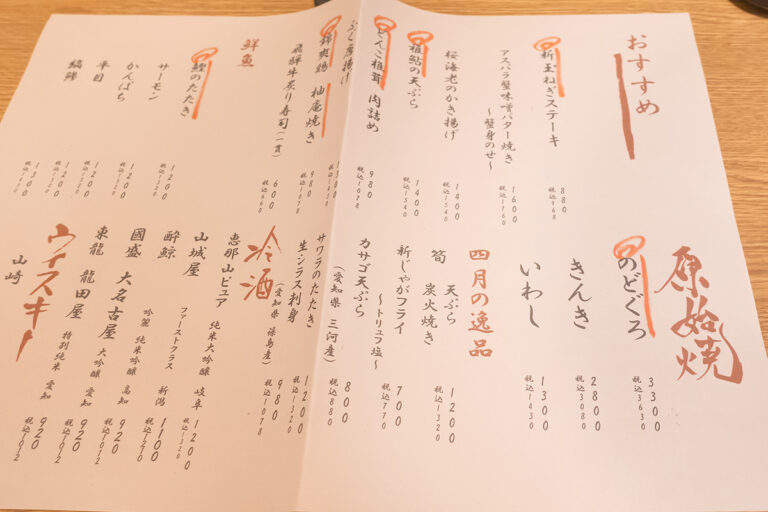 おすすめ
新玉ねぎステーキ
880
税込968
アスパラ蟹味噌バター焼き
〜蟹身のせ〜
1600
税込1760
桜海老のかき揚げ
1400
税込1540
稚鮎の天ぷら
1400
税込1540
どんこ椎茸 肉詰め
980
税込1078
ふぐ唐揚げ
1300
税込1430
錦爽鶏 柚庵焼き
980
税込1078
飛騨牛炙り寿司(一貫)
600
税込660
鮮魚
鰹のたたき
1200
税込1320
サーモン
1200
税込1320
かんぱち
1200
税込1320
平目
1200
税込1320
縞鯵
1300
原始焼
のどぐろ
3300
税込3630
きんき
2800
税込3080
いわし
1300
税込1430
四月の逸品
筍 天ぷら
炭火焼き
1200
税込1320
新じゃがフライ
〜トリュフ塩〜
700
税込770
カサゴ天ぷら
(愛知県 三河産)
800
税込880
サワラのたたき
1200
税込1320
生シラス刺身
(愛知県 篠島産)
980
税込1078
冷酒
恵那山ピュア 純米大吟醸 岐阜
1200
税込1320
山城屋 ファーストクラス 新潟
1100
税込1210
酔鯨 吟麗 純米吟醸 高知
920
税込1012
國盛 大名古屋 大吟醸 愛知
920
税込1012
東龍 龍田屋 特別純米 愛知
920
税込1012
ウイスキー
山崎